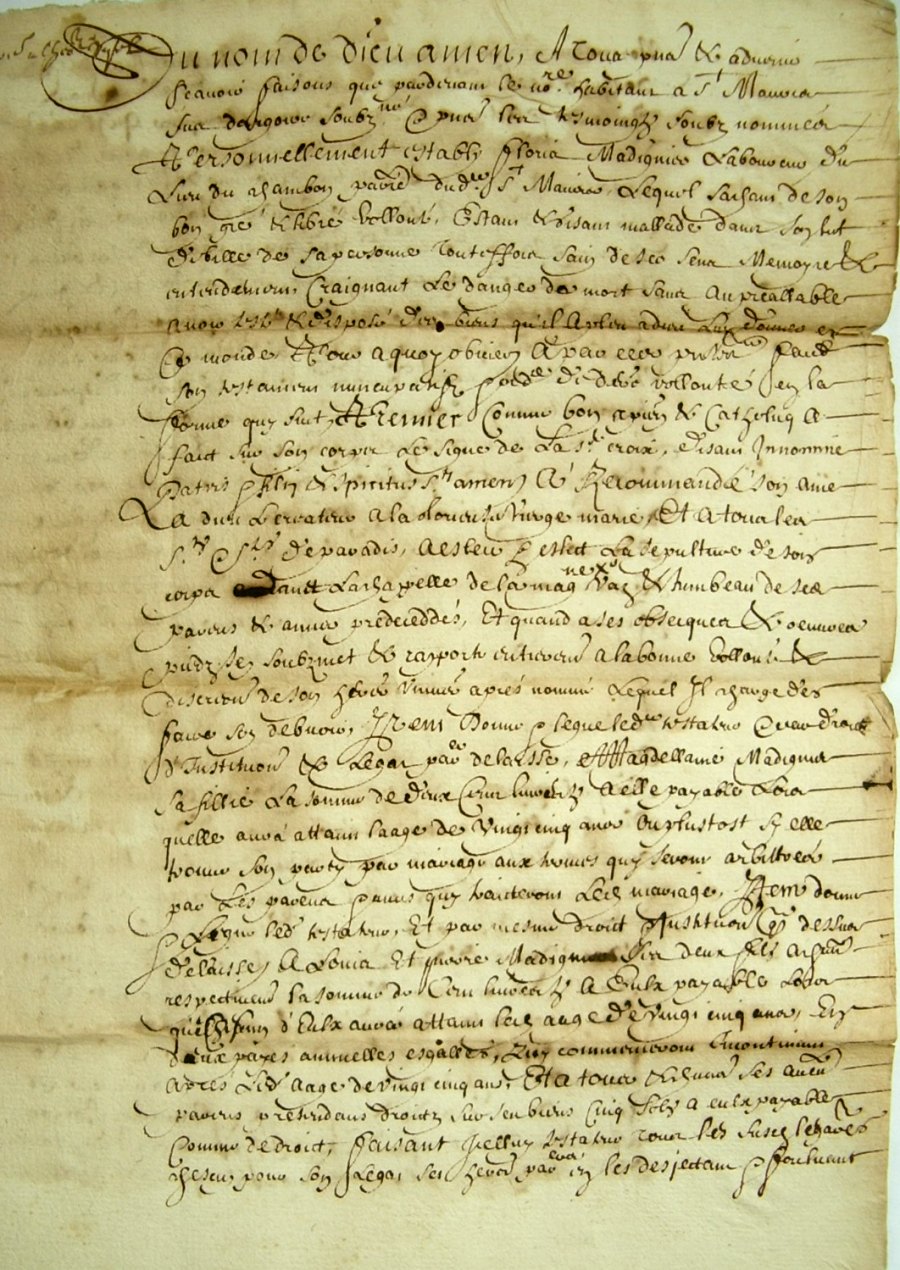 Au nom de dieu amen, A tous pnts & advenir
scavoir faisons que pardevant le nore habitant a St Maurice
sur dargoire soubzné & pnts les tesmoings soubz nommés
Personnellement estably Floris Madignier Laboureur du
Lieu du chambon parre dudt St Maurice, Lequel sachant de son
bon gré & libre vollonté, Estant & disant mallade dans son lit
débille de sa personne touteffois sain de ses sens Memoyre &
entendement, Craignant Le danger de mort sans au preallable
avoir testé & disposé des biens qu'il a pleu a dieu Luy donner en
Ce monde
son testament nuncupatif & ordce de dere vollonté en la
forme quy suit, Premier Comme bon crestien & Catholicq A
faict sur son corps Le signe de La Ste croix, disant Innomine
Patris & filij & spiritus sti amen, A Recommandé son ame
A dieu Le createur a la glorieuse Vierge marie, Et a tous les
Sts & Stes de paradis, A esleu & eslit La sepulture de son
corps dans La chapelle de la & tumbeau de ses
parens & amis predeceddés, Et quand a ses obseques & oeuvres
pies, Il s'en soubzmet & rapporte entierement a la bonne vollonté &
discretion de son heritier Univer apres nommé Lequel Il charge d'en
faire son debvoir, Item Donne & legue led testateur & par droict
d'Institution & Legat par de laisse, A Magdellaine Madignier
sa fillie La somme de deux Cent livres A elle payable Lors
quelle aura attaint laage de vingt cinq ans Ou plustost sy elle
trouve son party par mariage aux termes quy seront arbittrés
par Les parens & amis quy traicteront Led mariage, Item donne
& Legue led testateur, Et par mesme droict d'Institution que dessus
delaisse A Et Madignier ses deux fils a chacun
respectivement la somme de Cent livres A Eulx payable Lors
que chascun d'Eulx aura attaint led aage de vingt cinq ans, En
deux payes annuelles esgalles, quy commenceront Incontinent
apres led aage de vingt cinq ans, Et a tous & chacuns ses autres
parens pretendans droictz sur ses biens Cinq solz a eulx payable
Comme de droict, faisant Icelluy testateur tous les susd legataires
chescun pour son Legat ses heritiers par les desjectant & fortcluant